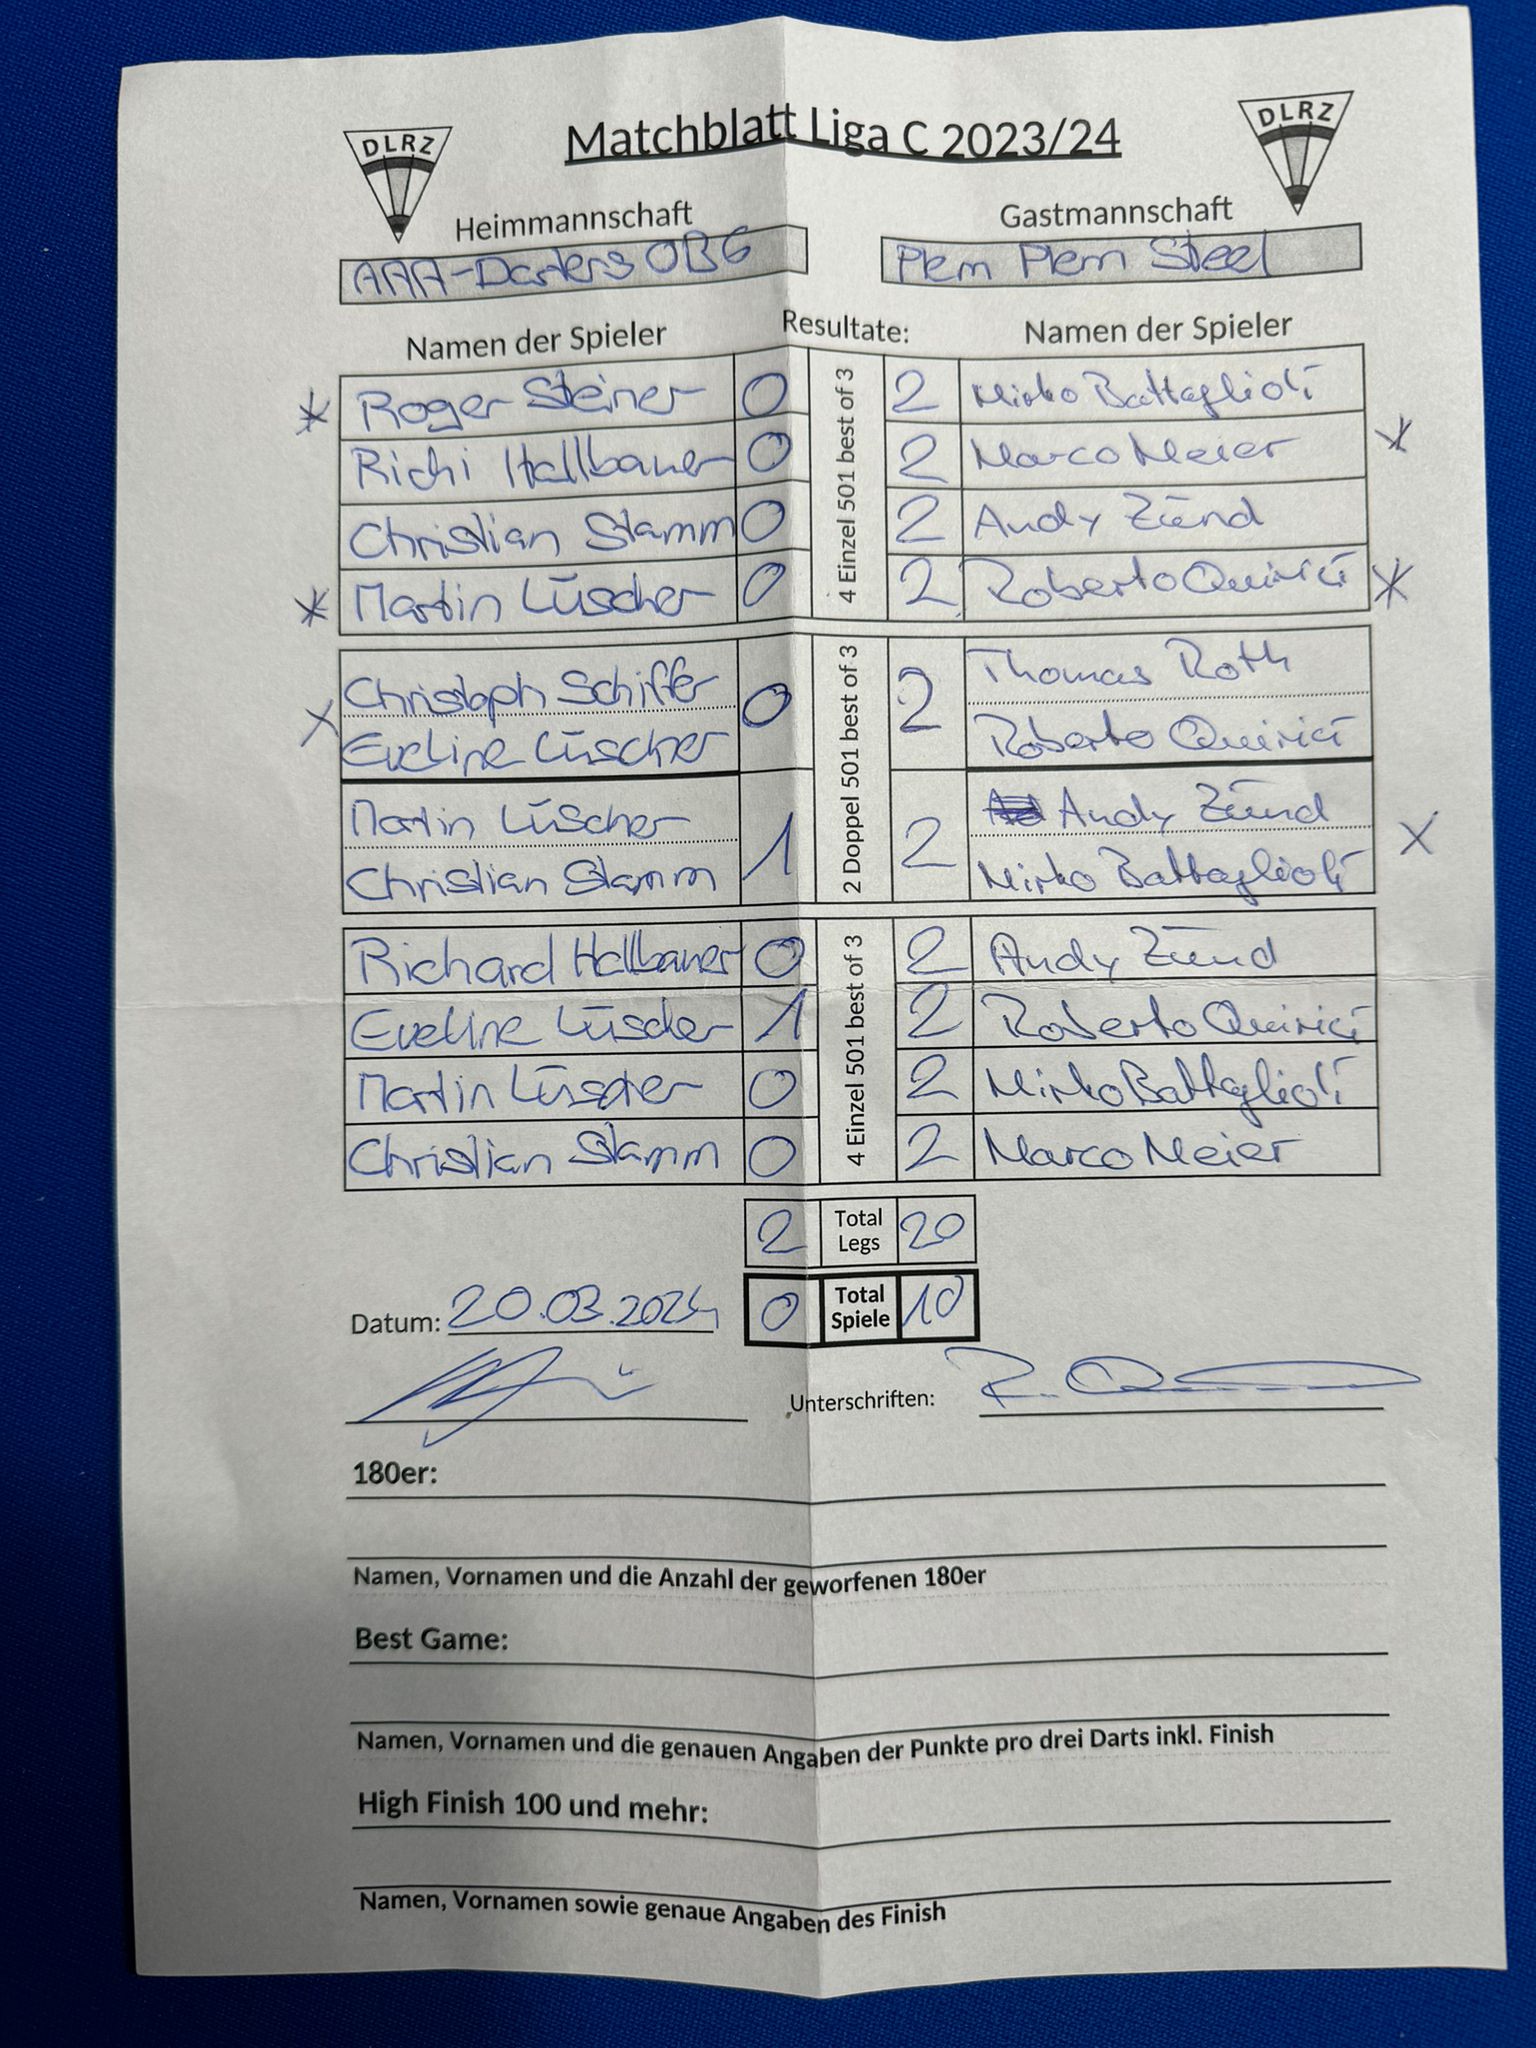 DLRZ Matchblatt Liga C 2023/24 DLRZ
Heimmannschaft Gastmannschaft
AAA-Darters OBG Plem Plem Steel
Namen der Spieler Resultate: Namen der Spieler
4 Einzel 501 best of 3
Roger Steiner 0 2 Mirko Battaglioli
Richi Hallbauer 0 2 Marco Meier
Christian Stamm 0 2 Andy Zünd
Martin Lüscher 0 2 Roberto Quirici
2 Doppel 501 best of 3
Christoph Schiffer 0 2 Thomas Roth
Eveline Lüscher Roberto Quirici
Martin Lüscher 1 2 Andy Zünd
Christian Stamm Mirko Battaglioli
4 Einzel 501 best of 3
Richard Hallbauer 0 2 Andy Zünd
Eveline Lüscher 1 2 Roberto Quirici
Martin Lüscher 0 2 Mirko Battaglioli
Christian Stamm 0 2 Marco Meier
2 Total Legs 20
Datum: 20.03.2024 0 Total Spiele 10
Unterschriften:
180er:
Namen, Vornamen und die Anzahl der geworfenen 180er
Best Game:
Namen, Vornamen und die genauen Angaben der Punkte pro drei Darts inkl. Finish
High Finish 100 und mehr:
Namen, Vornamen sowie genaue Angaben des Finish